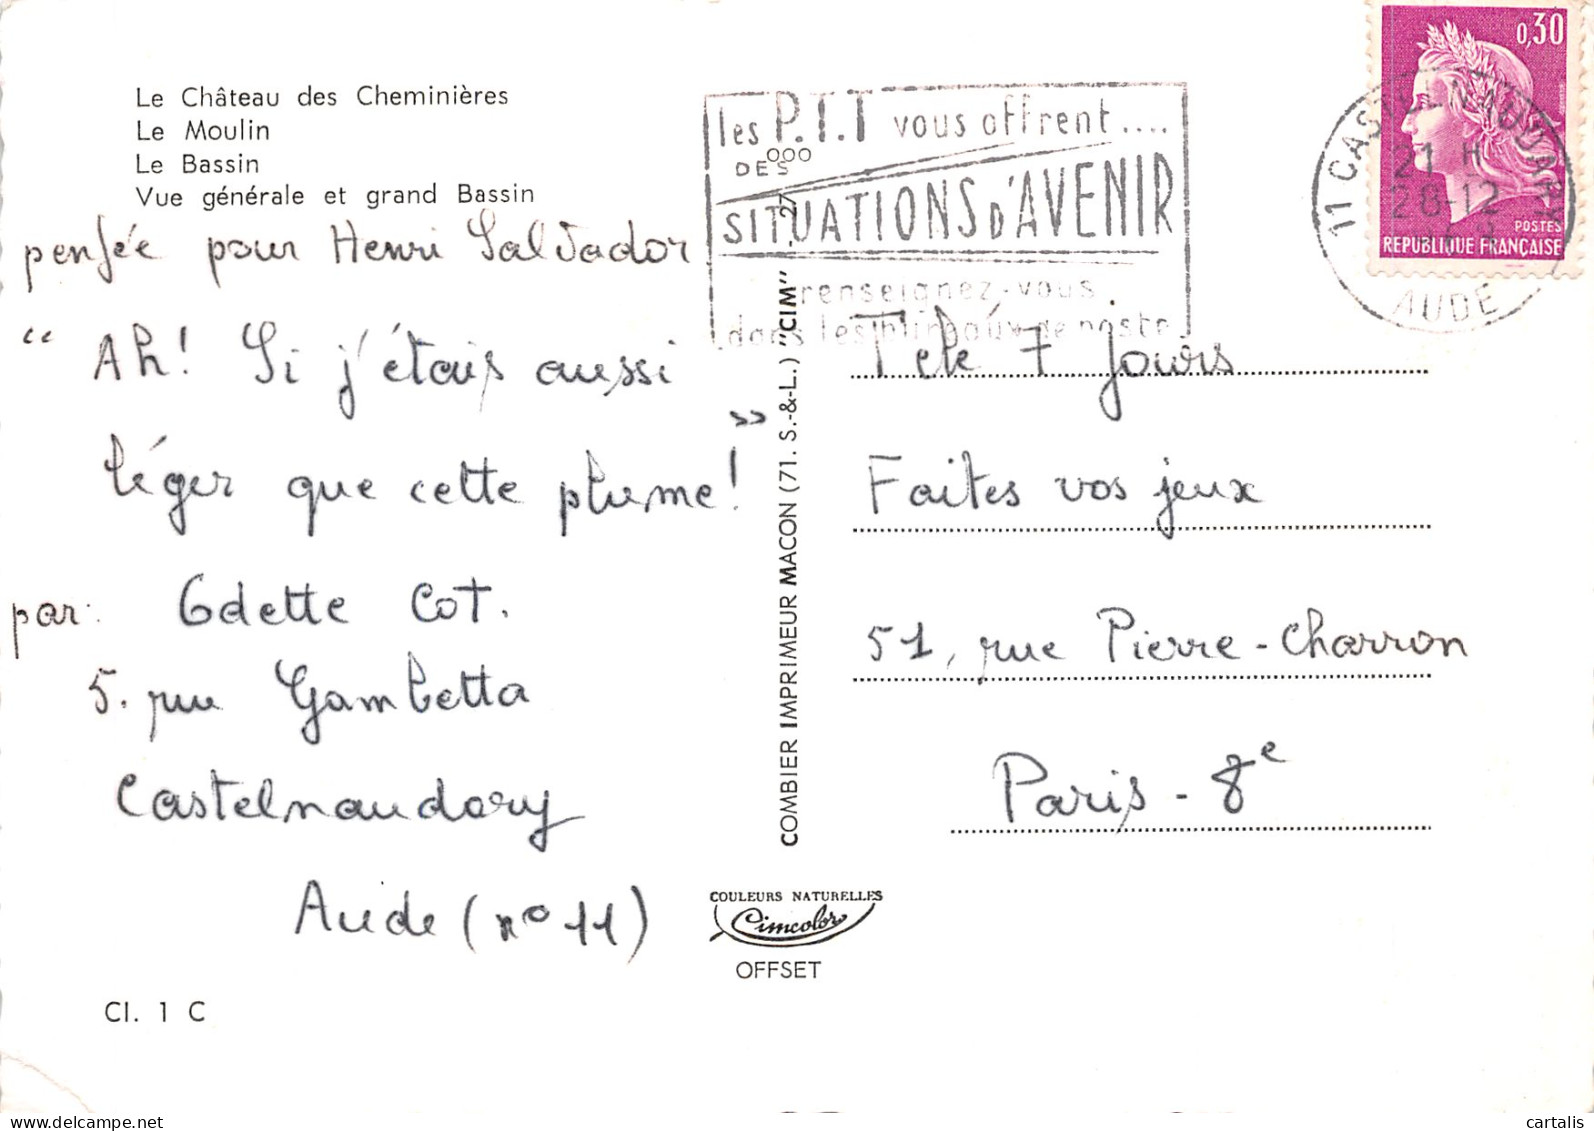 Le Château des Cheminières
Le Moulin
Le Bassin
Vue générale et grand Bassin
pensée pour Henri Salvador
“ Ah! Si j'étais aussi
léger que cette plume! ”
par: Odette Cot.
5. rue Gambetta
Castelnaudary
Aude (n° 11)
Cl. 1 C
COMBIER IMPRIMEUR MACON (71. S.-&-L.) "CIM"
COULEURS NATURELLES
Cimcolor
OFFSET
les P.T.T vous offrent....
DES
SITUATIONS D'AVENIR
renseignez-vous
dans les bureaux de poste
0,30
POSTES
REPUBLIQUE FRANÇAISE
11 CASTELNAUDARY
21 H
28-12
AUDE
Télé 7 Jours
Faites vos jeux
51, rue Pierre-Charron
Paris - 8e
cartalis